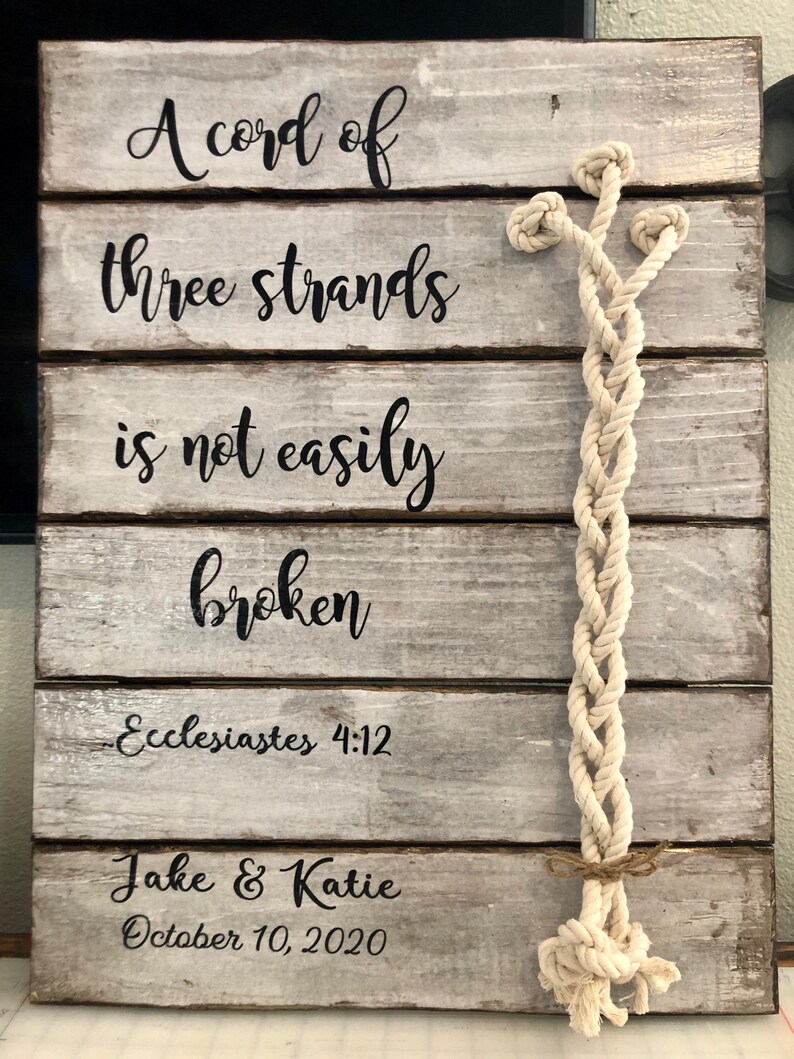 A cord of
three strands
is not easily
broken
~Ecclesiastes 4:12
Jake & Katie
October 10, 2020